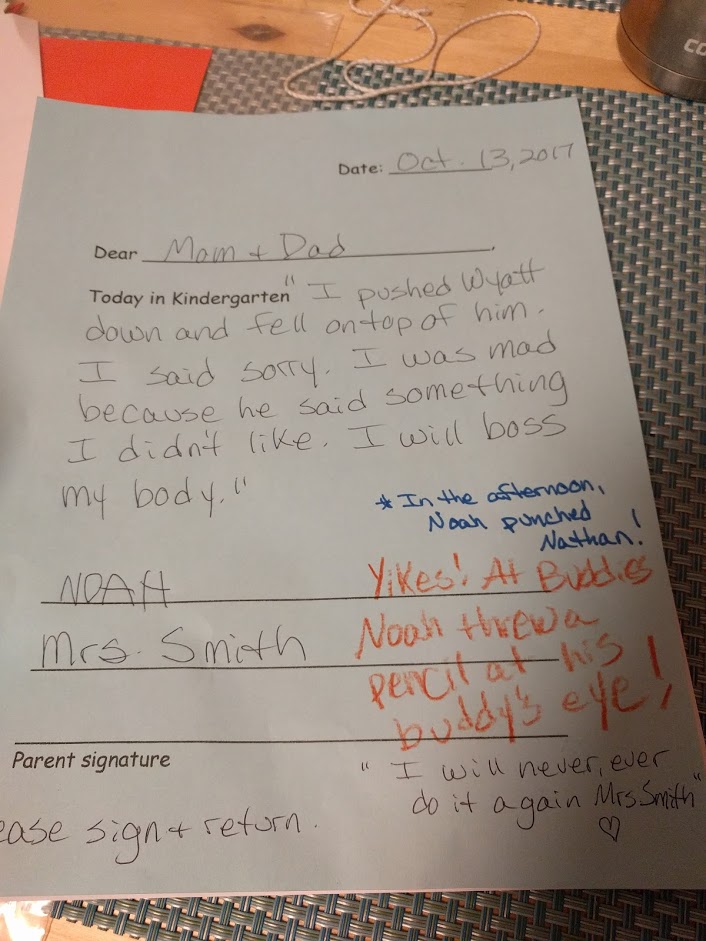 CO
Date: Oct. 13, 2017
Dear Mom + Dad,
Today in Kindergarten " I pushed Wyatt
down and fell on top of him.
I said sorry. I was mad
because he said something
I didn't like. I will boss
my body."
* In the afternoon,
Noah punched
Nathan!
NOAH
Yikes! At Buddies
Noah threw a
pencil at his
buddy's eye!
Mrs. Smith
Parent signature
" I will never, ever
do it again Mrs Smith"
♡
ease sign + return.